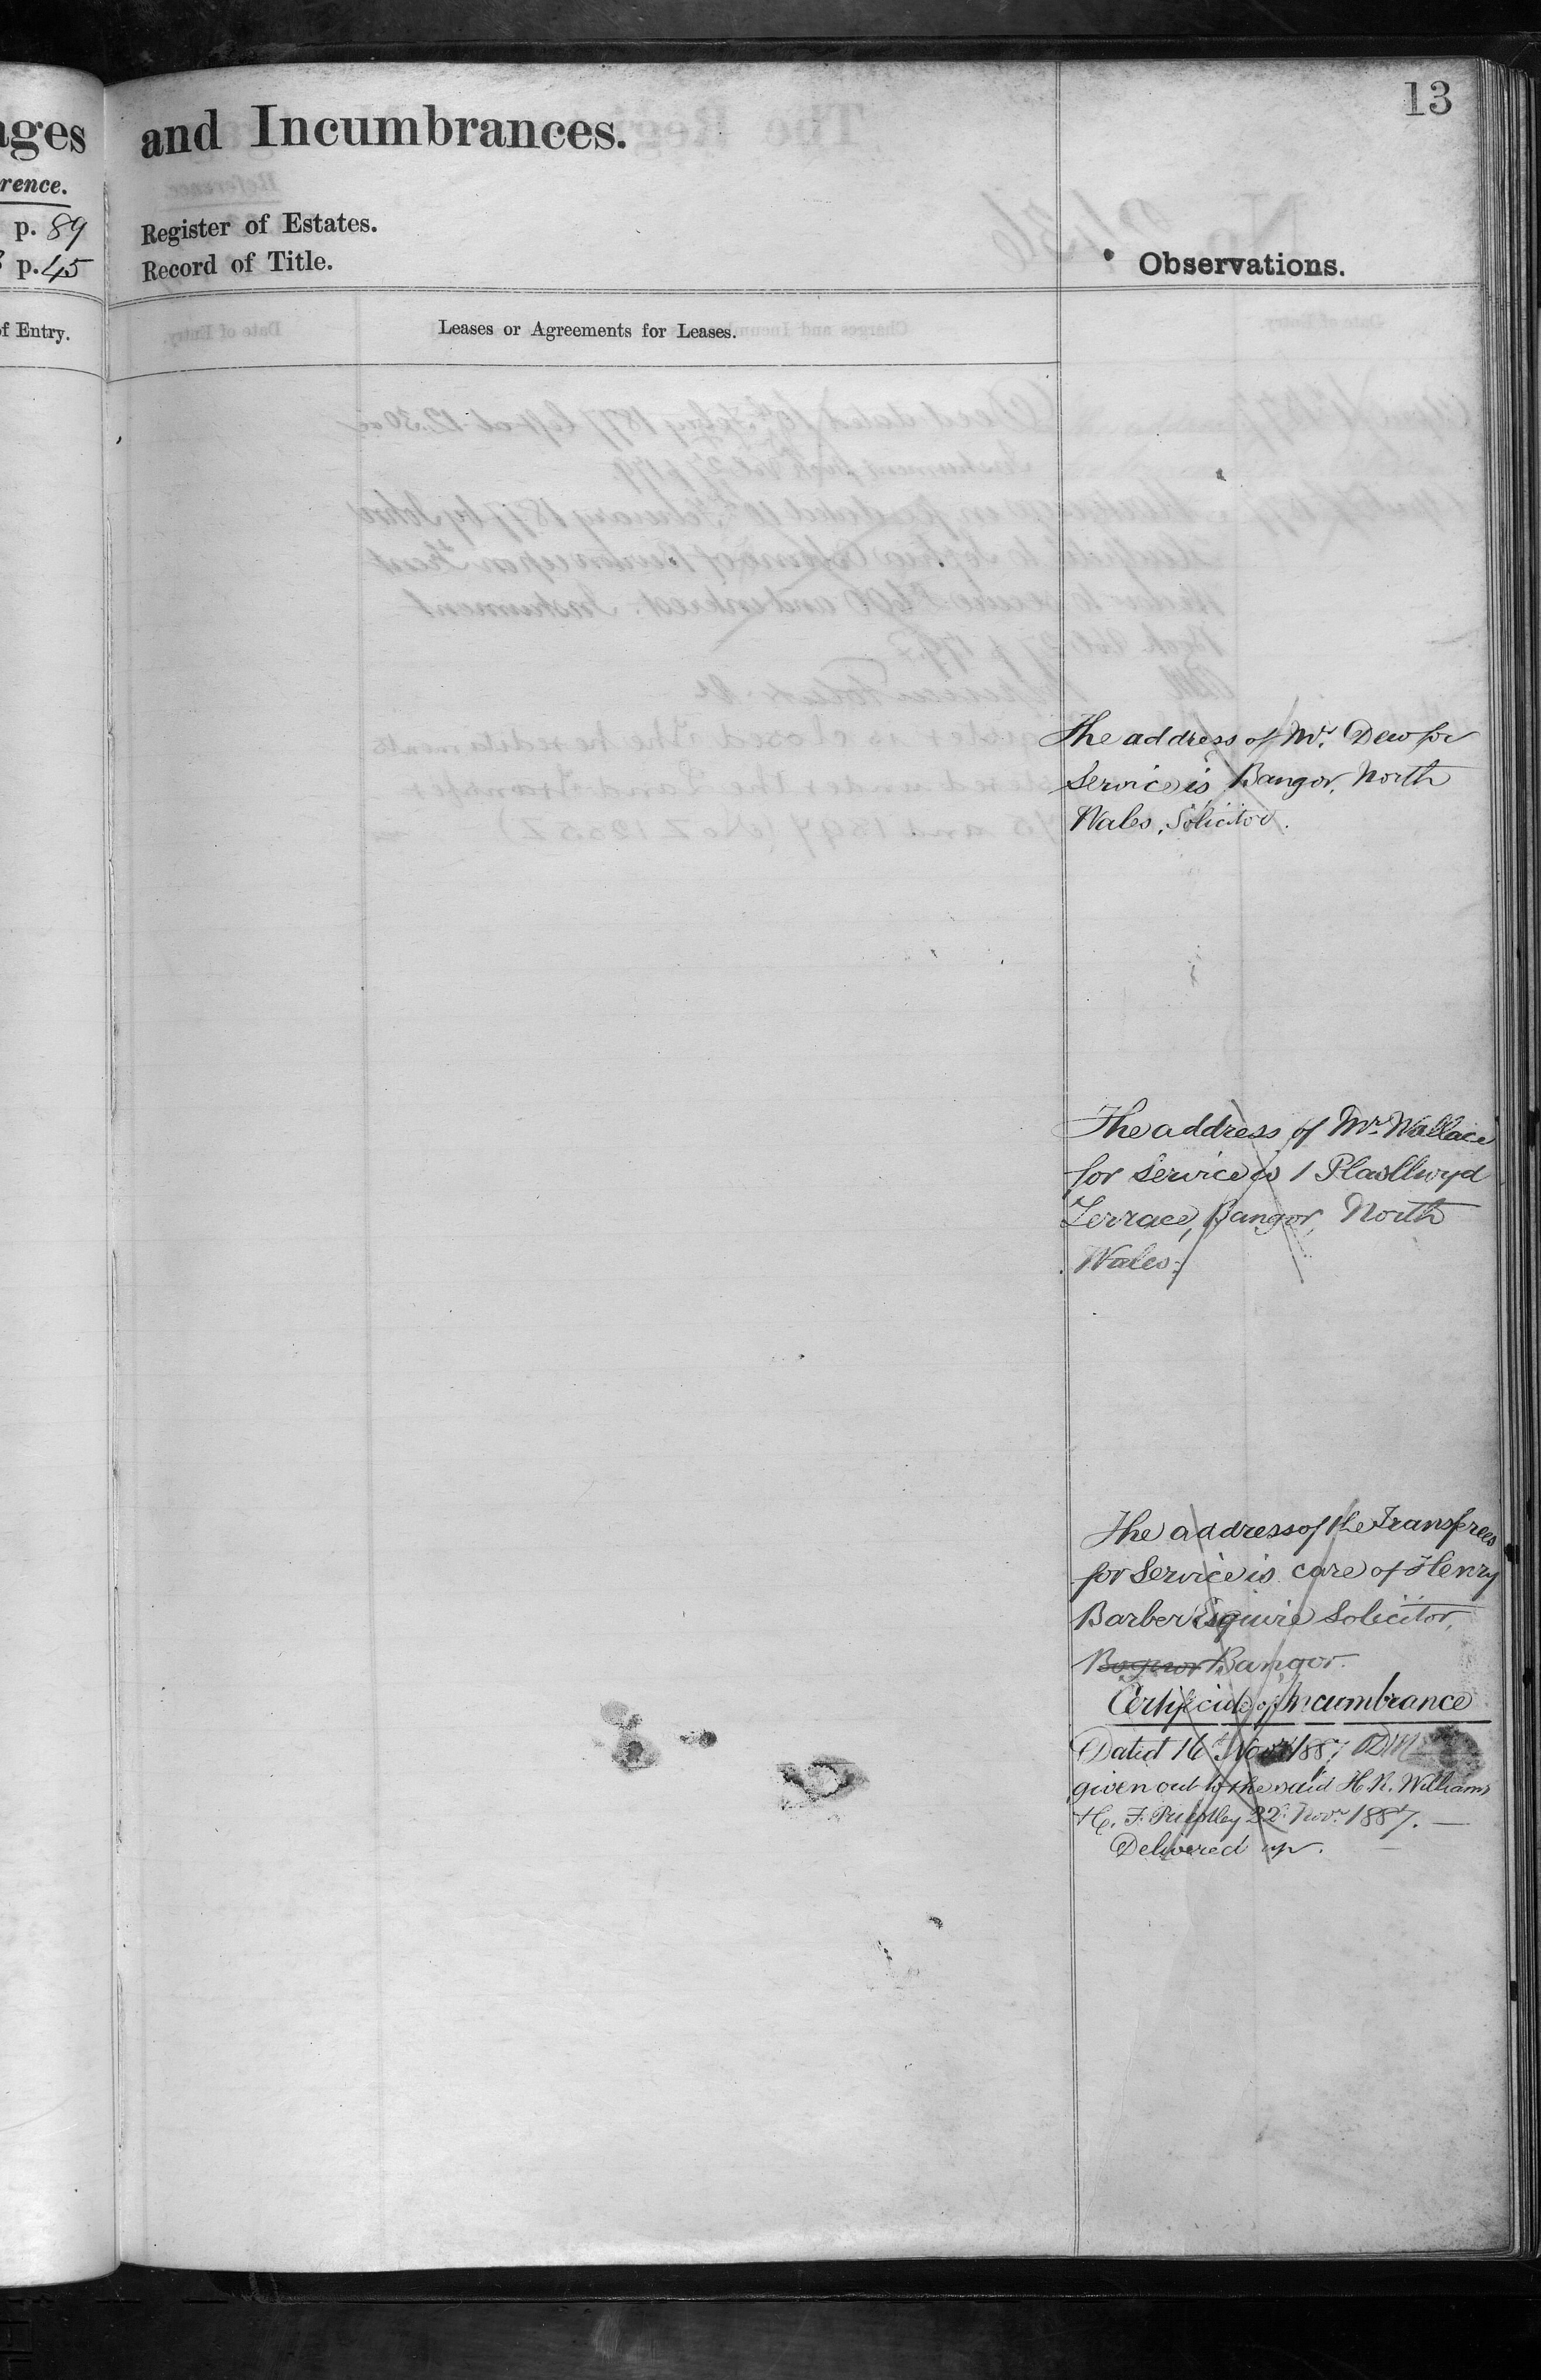 13
ages
and Incumbrances.
rence.
p. 89
Register of Estates.
p. 45
Record of Title.
Observations.
of Entry.
Leases or Agreements for Leases.
The address of Mr. Dew for
Service is Bangor, North
Wales, Solicitor.
The address of Mr. Wallace
for Service is 1 Plasllwyd
Terrace, Bangor, North
Wales.
The address of the Transferees
for Service is care of Henry
Barber Esquire Solicitor,
Bognor Bangor.
Certificate of Incumbrance
Dated 16th Novr. 1887
given out to the said H. R. Williams
H. F. Priestley 22 Novr. 1887.
Delivered up.